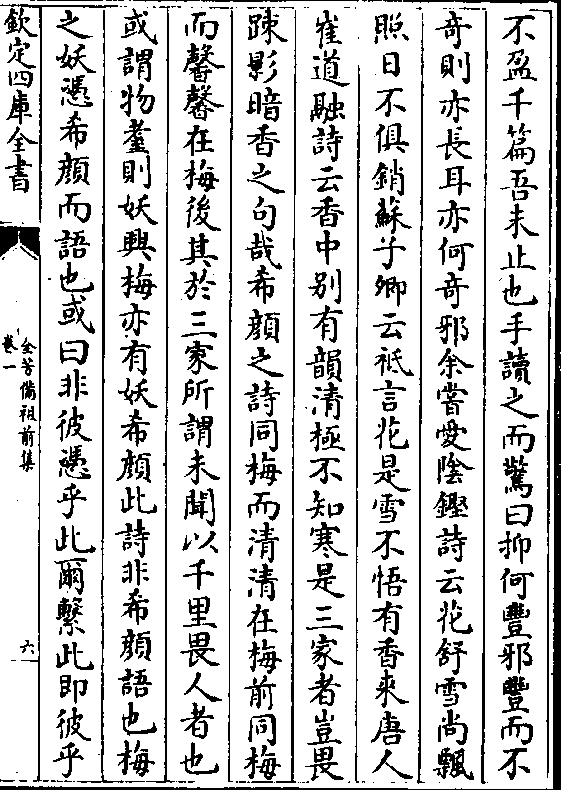 不盈千篇吾未止也手讀之而驚曰抑何豐邪豐而不
竒則亦長耳亦何竒邪余嘗愛陰鏗詩云花舒雪尚飄
照日不俱銷蘇子卿云祇言花是雪不悟有香來唐人
崔道融詩云香中别有韻清極不知寒是三家者豈畏
踈影暗香之句哉希顔之詩同梅而清清在梅前同梅
而馨馨在梅後其於三家所謂未聞以千里畏人者也
或謂物耋則妖興梅亦有妖希顔此詩非希顔語也梅
之妖憑希顔而語也或曰非彼憑乎此爾繫此即彼乎
欽定四庫全書
全芳備祖前集
卷一
六